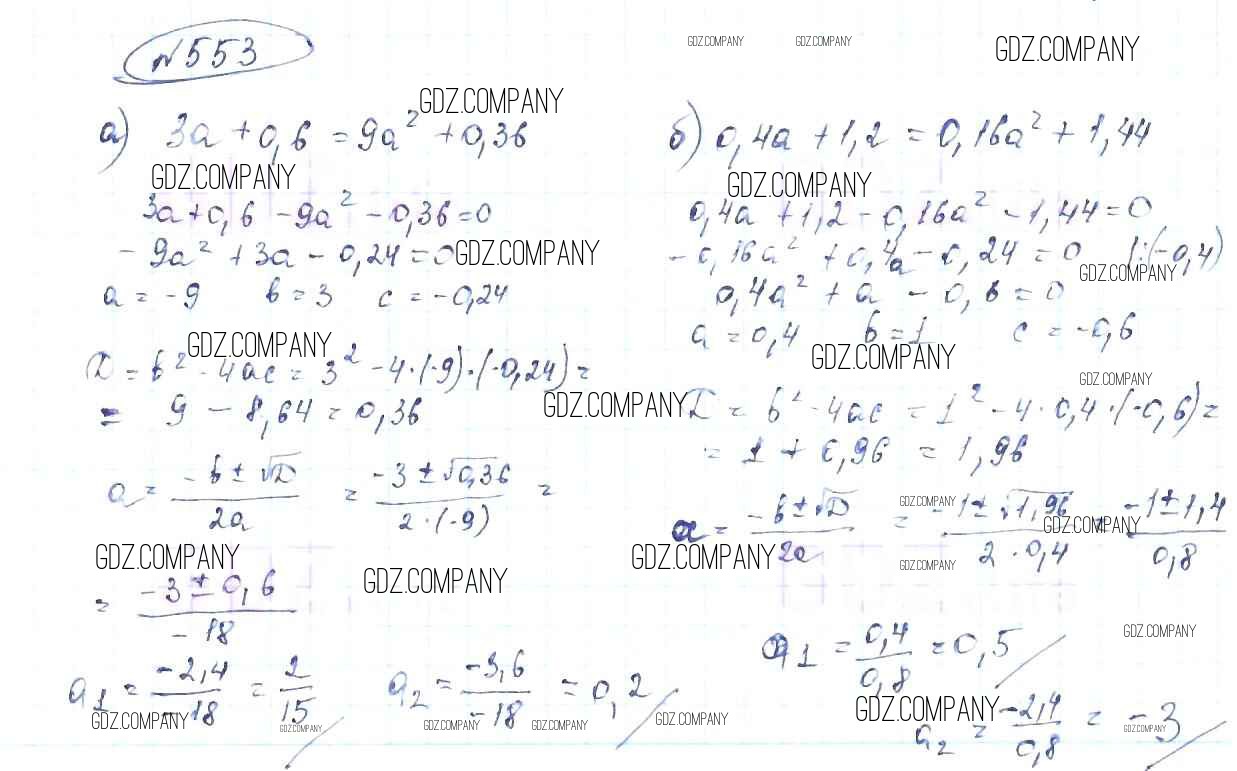 №553
GDZ.COMPANY GDZ.COMPANY GDZ.COMPANY
GDZ.COMPANY
а) 3a + 0,6 = 9a² + 0,36
GDZ.COMPANY
3a + 0,6 - 9a² - 0,36 = 0
- 9a² + 3a - 0,24 = 0 GDZ.COMPANY
a = -9 b = 3 c = -0,24
GDZ.COMPANY
D = b² - 4ac = 3² - 4·(-9)·(-0,24) =
= 9 - 8,64 = 0,36
GDZ.COMPANY
a = (-b ± √D)/2a = (-3 ± √0,36)/(2·(-9)) =
GDZ.COMPANY
GDZ.COMPANY
= (-3 ± 0,6)/(-18)
a₁ = (-2,4)/(-18) = 2/15 a₂ = (-3,6)/(-18) = 0,2
GDZ.COMPANY GDZ.COMPANY GDZ.COMPANY GDZ.COMPANY GDZ.COMPANY
б) 0,4a + 1,2 = 0,16a² + 1,44
GDZ.COMPANY
0,4a + 1,2 - 0,16a² - 1,44 = 0
- 0,16a² + 0,4a - 0,24 = 0 |:(-0,4)
GDZ.COMPANY
0,4a² + a - 0,6 = 0
a = 0,4 b = 1 c = -0,6
GDZ.COMPANY
GDZ.COMPANY
D = b² - 4ac = 1² - 4·0,4·(-0,6) =
= 1 + 0,96 = 1,96
GDZ.COMPANY
a = (-b ± √D)/2a = (-1 ± √1,96)/(2·0,4) = (-1 ± 1,4)/0,8
GDZ.COMPANY
GDZ.COMPANY GDZ.COMPANY
GDZ.COMPANY
a₁ = 0,4/0,8 = 0,5
GDZ.COMPANY
a₂ = -2,4/0,8 = -3
GDZ.COMPANY